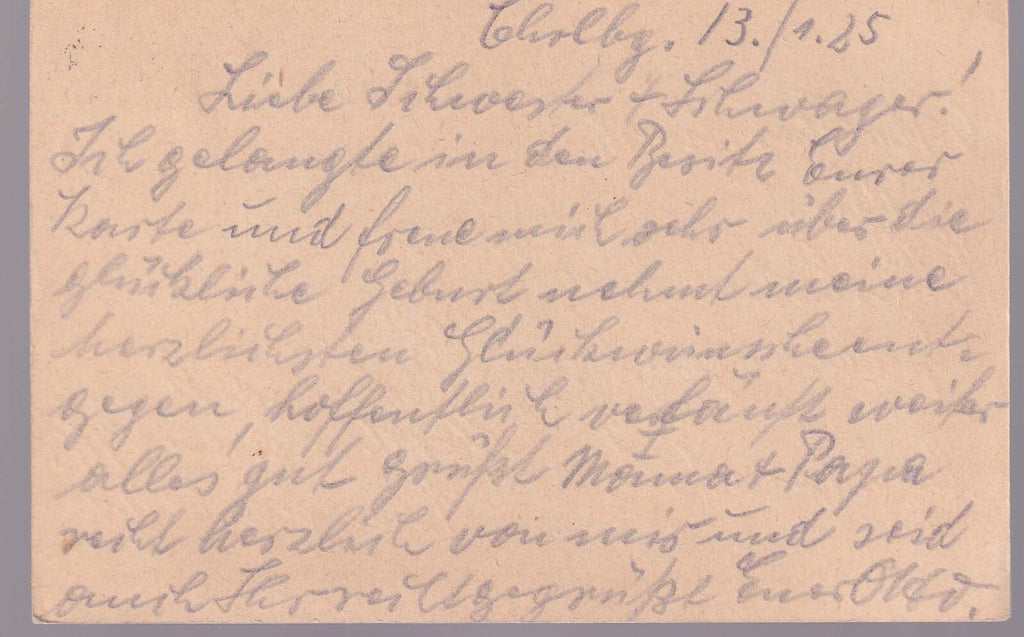 Chrlbg. 13./1.25
Liebe Schwester + Schwager!
Ich gelangte in den Besitz Eurer
Karte und freue mich sehr über die
glückliche Geburt nehmt meine
herzlichsten Glückwünsche ent-
gegen, hoffentlich verläuft weiter
alles gut grüßt Mama + Papa
recht herzlich von mir und seid
auch Ihr recht gegrüßt Euer Otto.